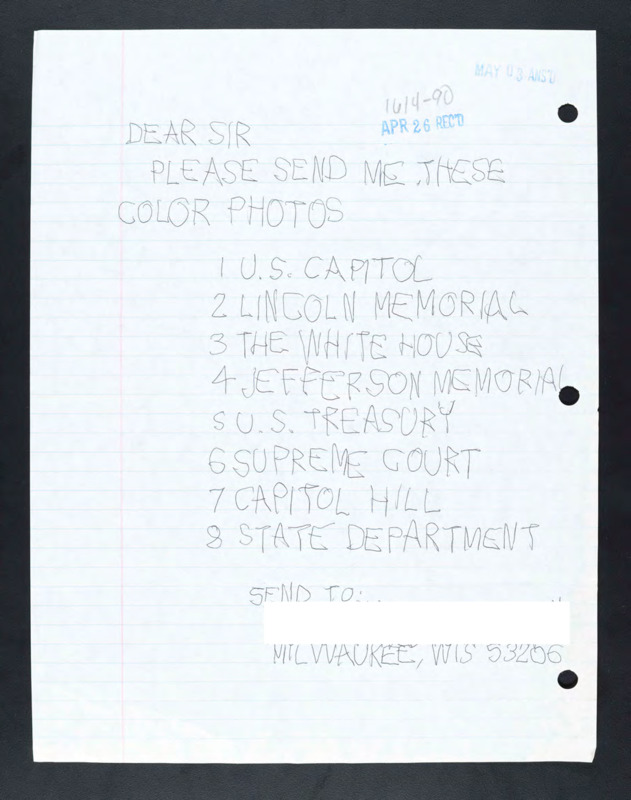 MAY 03 ANS'D
1614-90
APR 26 REC'D
DEAR SIR
PLEASE SEND ME THESE
COLOR PHOTOS
1 U.S. CAPITOL
2 LINCOLN MEMORIAL
3 THE WHITE HOUSE
4 JEFFERSON MEMORIAL
5 U.S. TREASURY
6 SUPREME COURT
7 CAPITOL HILL
8 STATE DEPARTMENT
SEND TO:
MILWAUKEE, WIS 53206